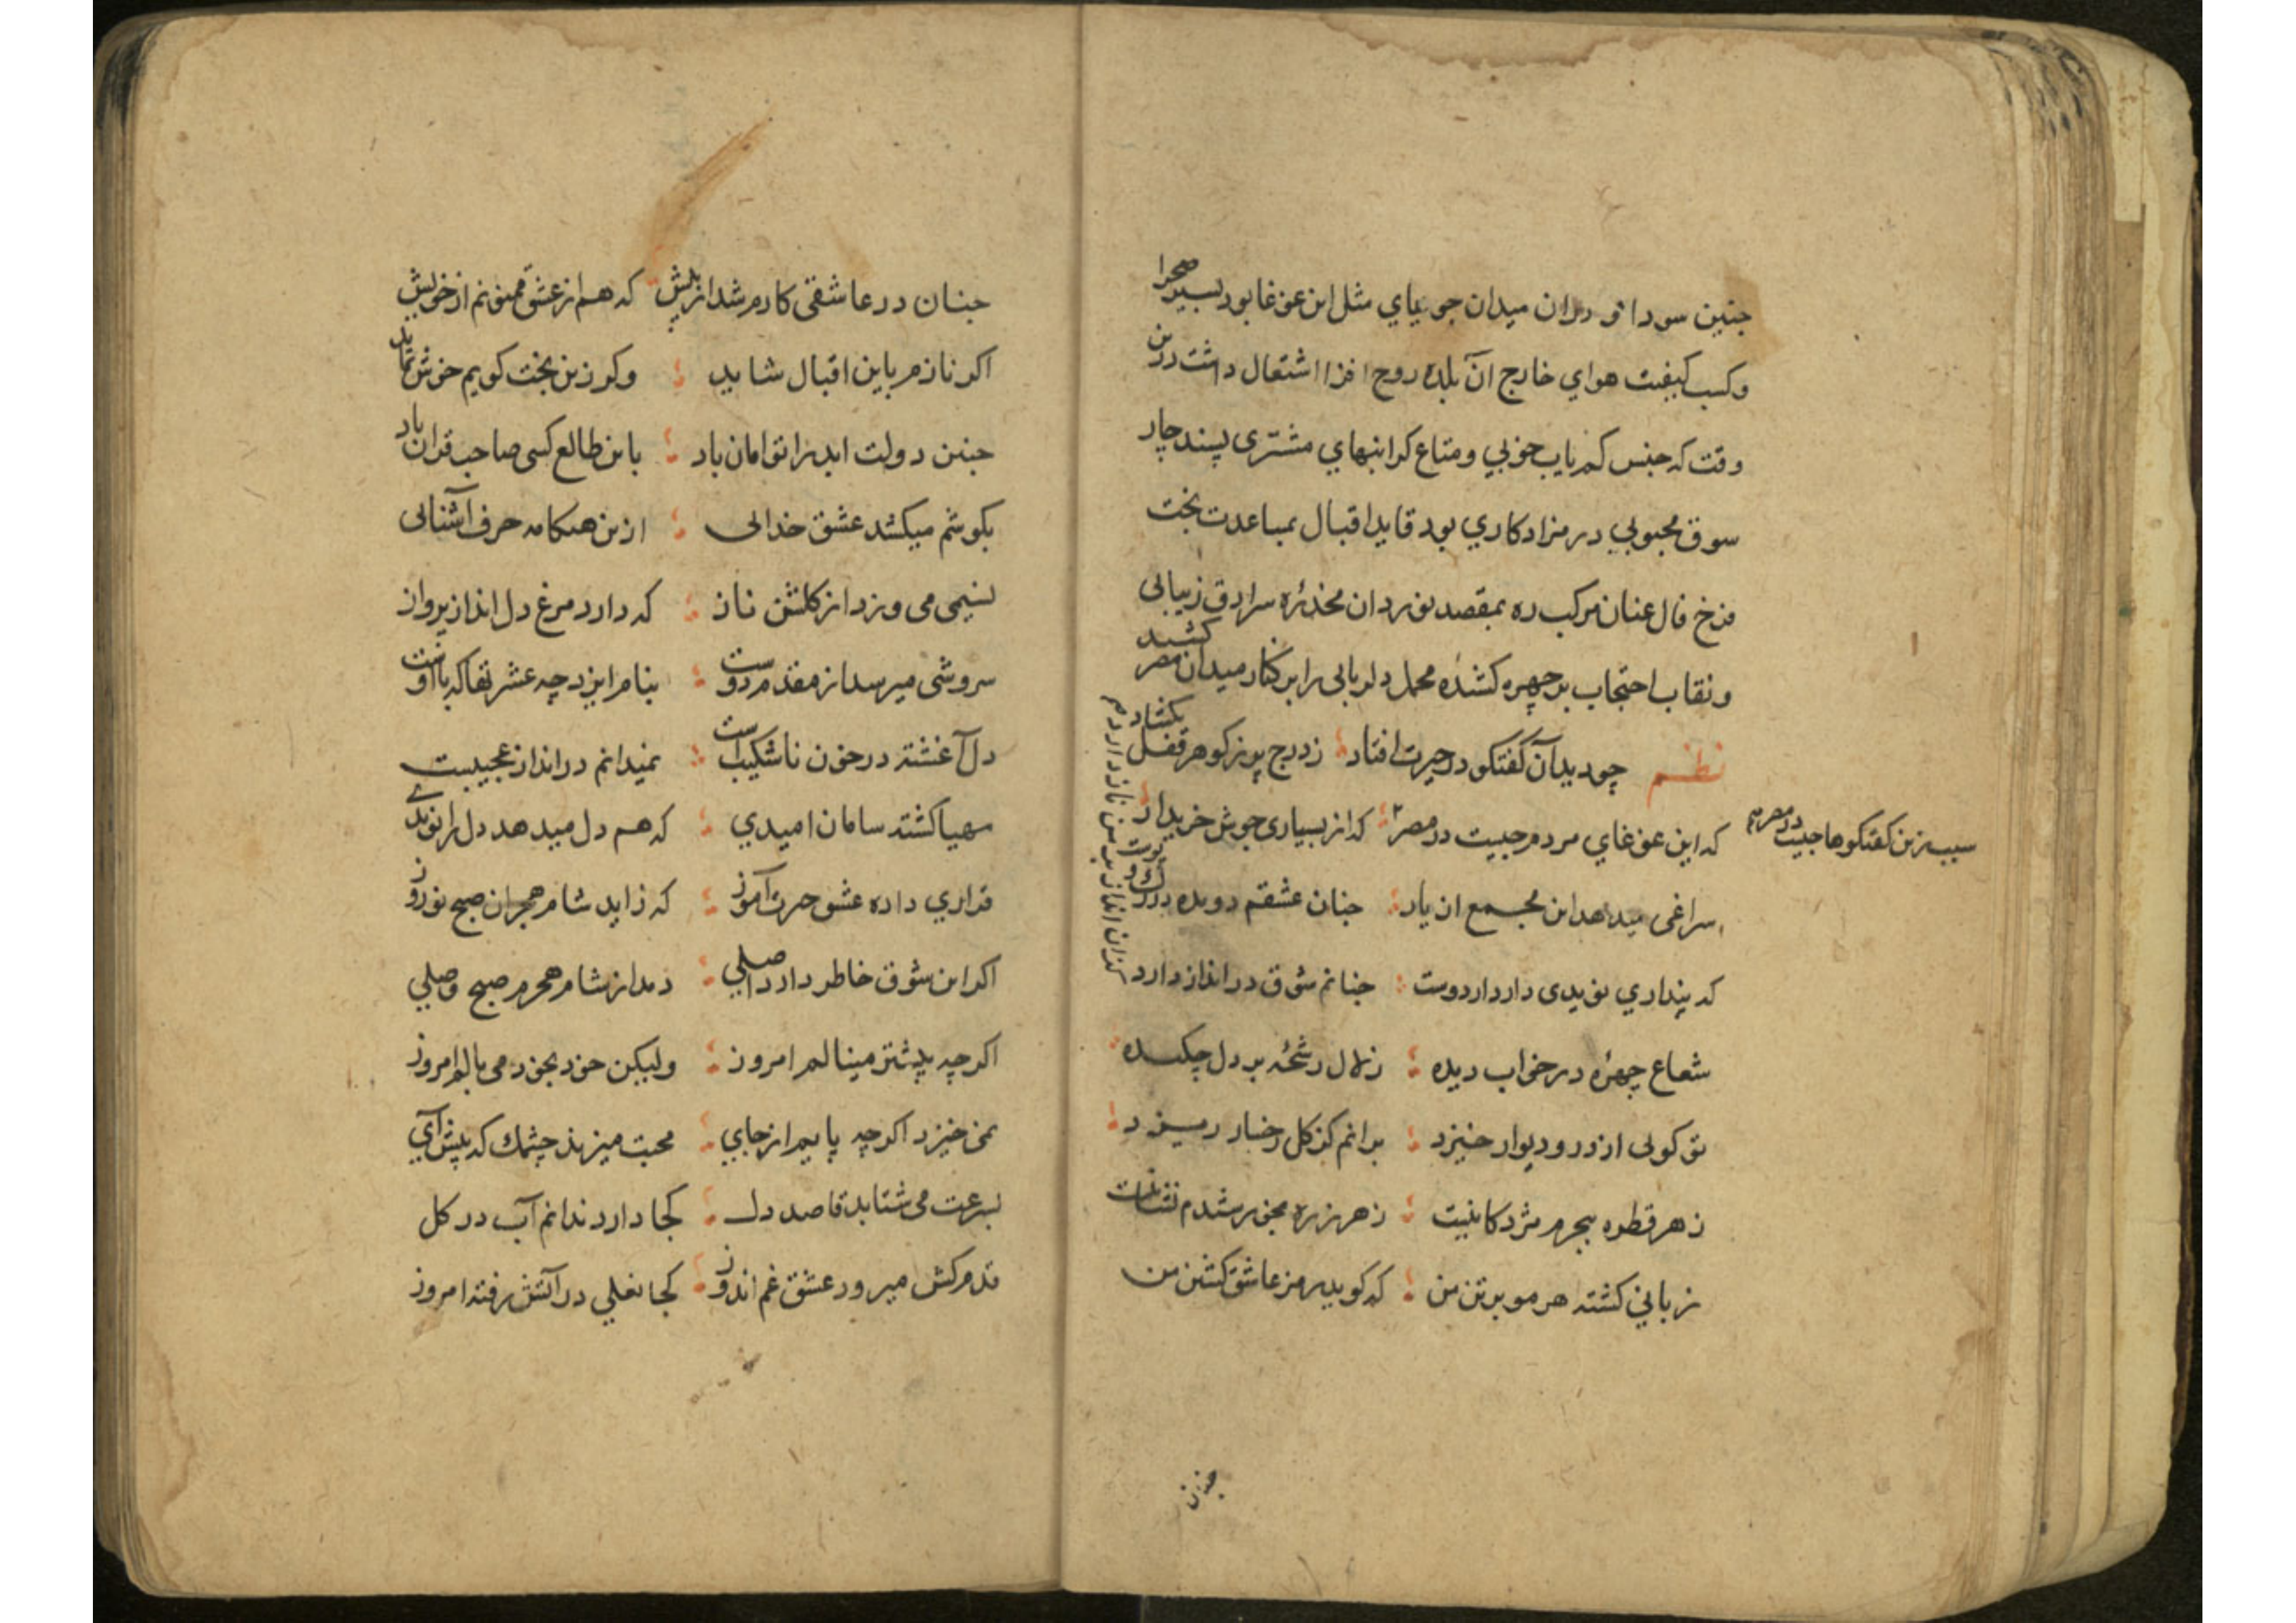 چنین سودا و دران میدان جویای مثل این غوغا بود بسیر صحرا
و کسب کیفیت هوای خارج آن بلده روح افزا اشتغال داشت درین
وقت که جنس کم یاب خوبی و متاع کرانبهای مشتری پسند چار
سوق محبوبی در مزاد کاری بود قاید اقبال بمساعدت بخت
فرخ فال عنان مرکب ره بمقصد نوردان مخدره سرادق زیبائی
و نقاب احتجاب بر چهره کشنده محمل دلربائی را بر کنار میدان مصر کشید
نظم چو دید آن کفتکو در حیرت افتاد ز درج پر ز کوهر قفل بکشاد
که این غوغای مردم چیست در مصر که از بسیاری جوش خریدار
سبب زین کفتکوها چیست در مصرم
سراغی میدهد این مجمع از یار چنان عشقم دویده در رک و پوست
که پنداری نویدی دارد از دوست چنانم شوق در انداز دارد
شعاع چهره در خواب دیده زلال رشحه بر دل چکیده
تو کوئی از در و دیوار خیزد برانم کز کل رخسار ریزد
ز هر قطره ببحرم مژدکانیست ز هر ذره بخورشیدم نشانیست
زبانی کشته هر مو بر تن من که کوید رمز عاشق کشتن من
چنان
چنان در عاشقی کارم شد از پیش که هم از عشق ممنونم هم از خویش
اکر نازم باین اقبال شاید وکر زین بخت کویم خوش نماید
چنین دولت ابد را توامان باد باین طالع کسی صاحب قران باد
بکوشم میکشد عشق خدائی ازین هنکامه حرف آشنائی
نسیمی می وزد از کلشن ناز که دارد مرغ دل انداز پرواز
سروشی میرسد از مقدم دوست بنام ایزد چه عشرتها که با اوست
دل آغشته در خون ناشکیب است نمیدانم در انداز عجیبست
مهیا کشته سامان امیدی که هم دل میدهد دل را نویدی
قراری داده عشق حیرت آموز که زاید شام هجران صبح نوروز
اکر این شوق خاطر دارد اصلی دمد از شام هجرم صبح وصلی
اکرچه پیشتر مینالم امروز ولیکن خود بخود می بالم امروز
نمی خیزد اکرچه پایم از جای محبت میزند چشمک که پیش آی
بسرعت می شتابد قاصد دل کجا دارد ندانم آب در کل
قدم کش میرود عشق غم اندوز کجا نعلی در آتش رفته امروز